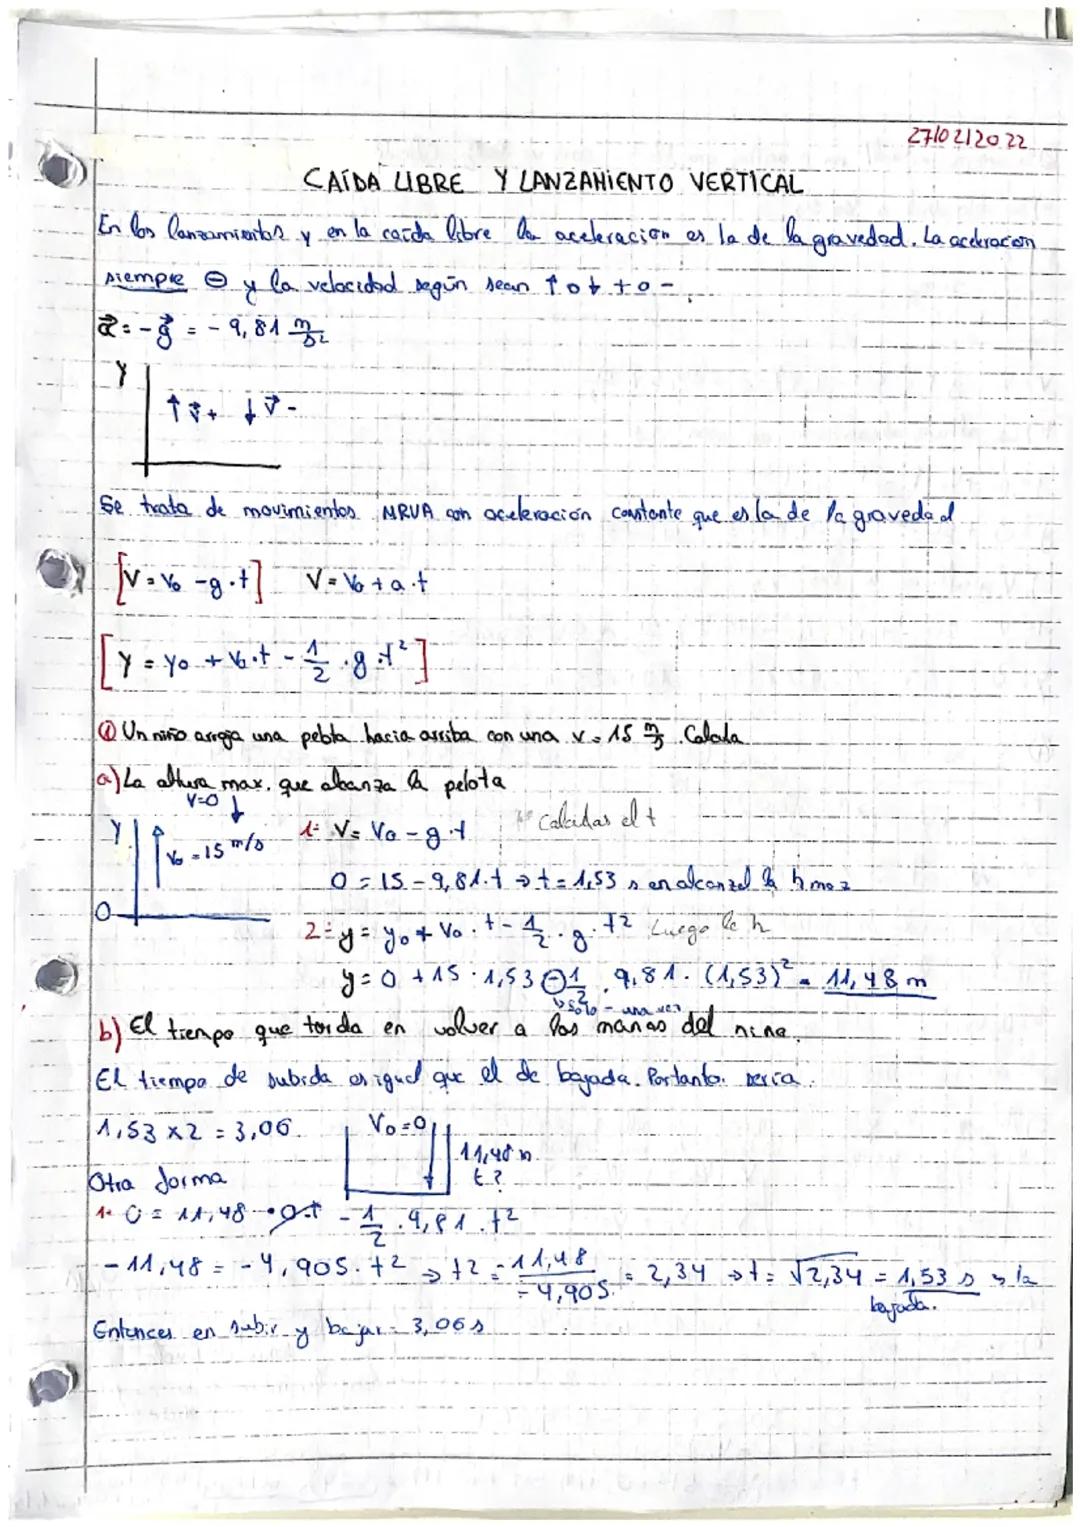 27/02/2022
CAÍDA LIBRE Y LANZAMIENTO VERTICAL
En los lanzamientos y en la caída libre la aceleración es la de la gravedad. La aceleración
siempre ⊖ y la velocidad según sean ↑ o ↓ + o -.
a⃗ = -g⃗ = - 9,81 m/s²
Y
↑ v⃗ + ↓ v⃗ -
Se trata de movimientos MRUA con aceleración constante que es la de la gravedad
[V = V₀ - g · t] V = V₀ + a · t
[Y = Y₀ + V₀ · t - 1/2 · g · t²]
① Un niño arroja una pelota hacia arriba con una v = 15 m/s. Calcula
a) La altura max. que alcanza la pelota
V=0 ↓
Y V₀ = 15 m/s
1º V = V₀ - g · t Calculas el t
0 = 15 - 9,81 · t → t = 1,53 s en alcanzal la h max
0
2º y = y₀ + V₀ · t - 1/2 · g · t² Luego la h
y = 0 + 15 · 1,53 ⊖ 1/2 · 9,81 · (1,53)² = 11,48 m
↳ solo - una vez
b) El tiempo que tarda en volver a las manos del nine.
El tiempo de subida es igual que el de bajada. Portanto. seria.
1,53 x 2 = 3,06
V₀ = 0
11,48 m
t?
Otra forma
1º 0 = 11,48 + 0·t - 1/2 · 9,81 · t²
- 11,48 = - 4,905 · t² → t² = 11,48 / -4,905 = 2,34 → t = √2,34 = 1,53 s → la
bajada.
Entonces en subir y bajar = 3,06 s